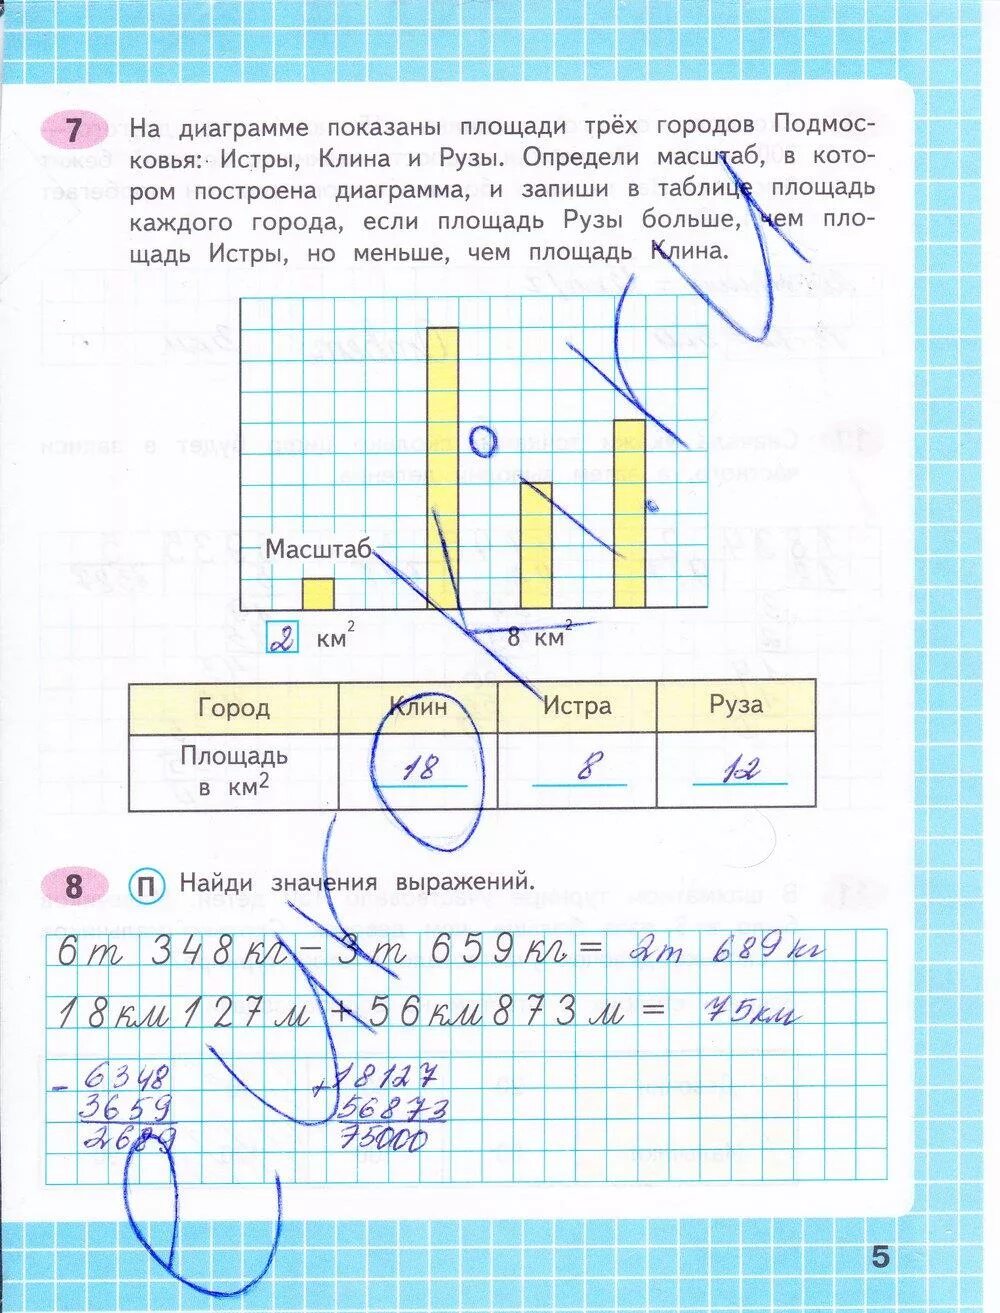 7 На диаграмме показаны площади трёх городов Подмос-
ковья: Истры, Клина и Рузы. Определи масштаб, в кото-
ром построена диаграмма, и запиши в таблице площадь
каждого города, если площадь Рузы больше, чем пло-
щадь Истры, но меньше, чем площадь Клина.
Масштаб
2 км² 8 км²
Город Клин Истра Руза
Площадь
в км² 18 8 12
8 П Найди значения выражений.
6т 348кг − 3т 659кг = 2т 689кг
18км127м + 56км873м = 75км
− 6348 + 18127
3659 56873
2689 75000
5